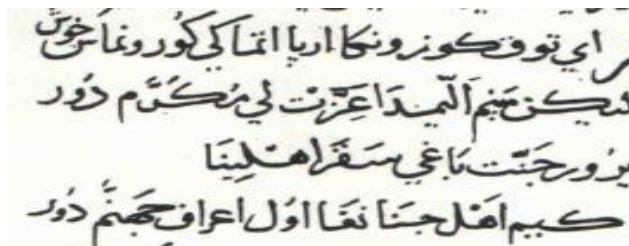 اي توق كوز ونكا اريا اتما كي كورونماس خوش
ليكن منم اَلّيمدا عِزّت لي مُكَرَّم دُور
يرور جنّت باغي سَقَر اهلينَا
كيم اهل جنانغا اوُل اعراف جهنَّم دُور